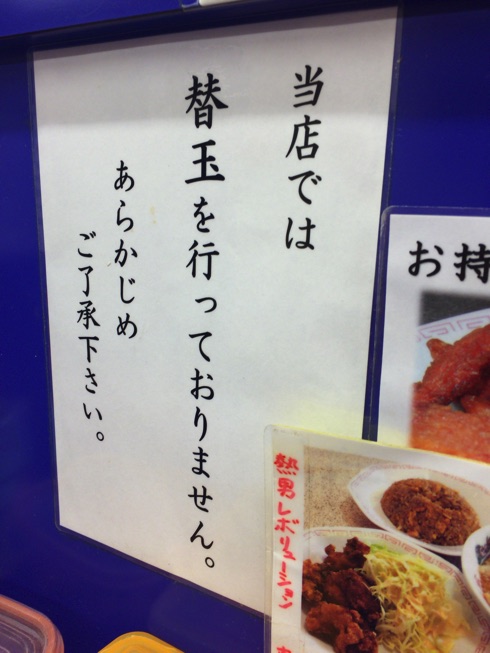 当店では
替玉を行っておりません。
あらかじめ
ご了承下さい。
お持
熱男レボリューション